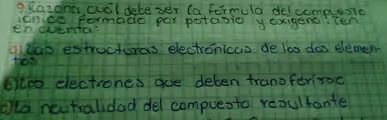 9. Razona cuál debe ser la fórmula del compuesto
iónico formado por potasio y oxígeno. Ten
en cuenta:
a) Las estructuras electrónicas de los dos elemen-
tos
b) Los electrones que deben transferirse
c) La neutralidad del compuesto resultante